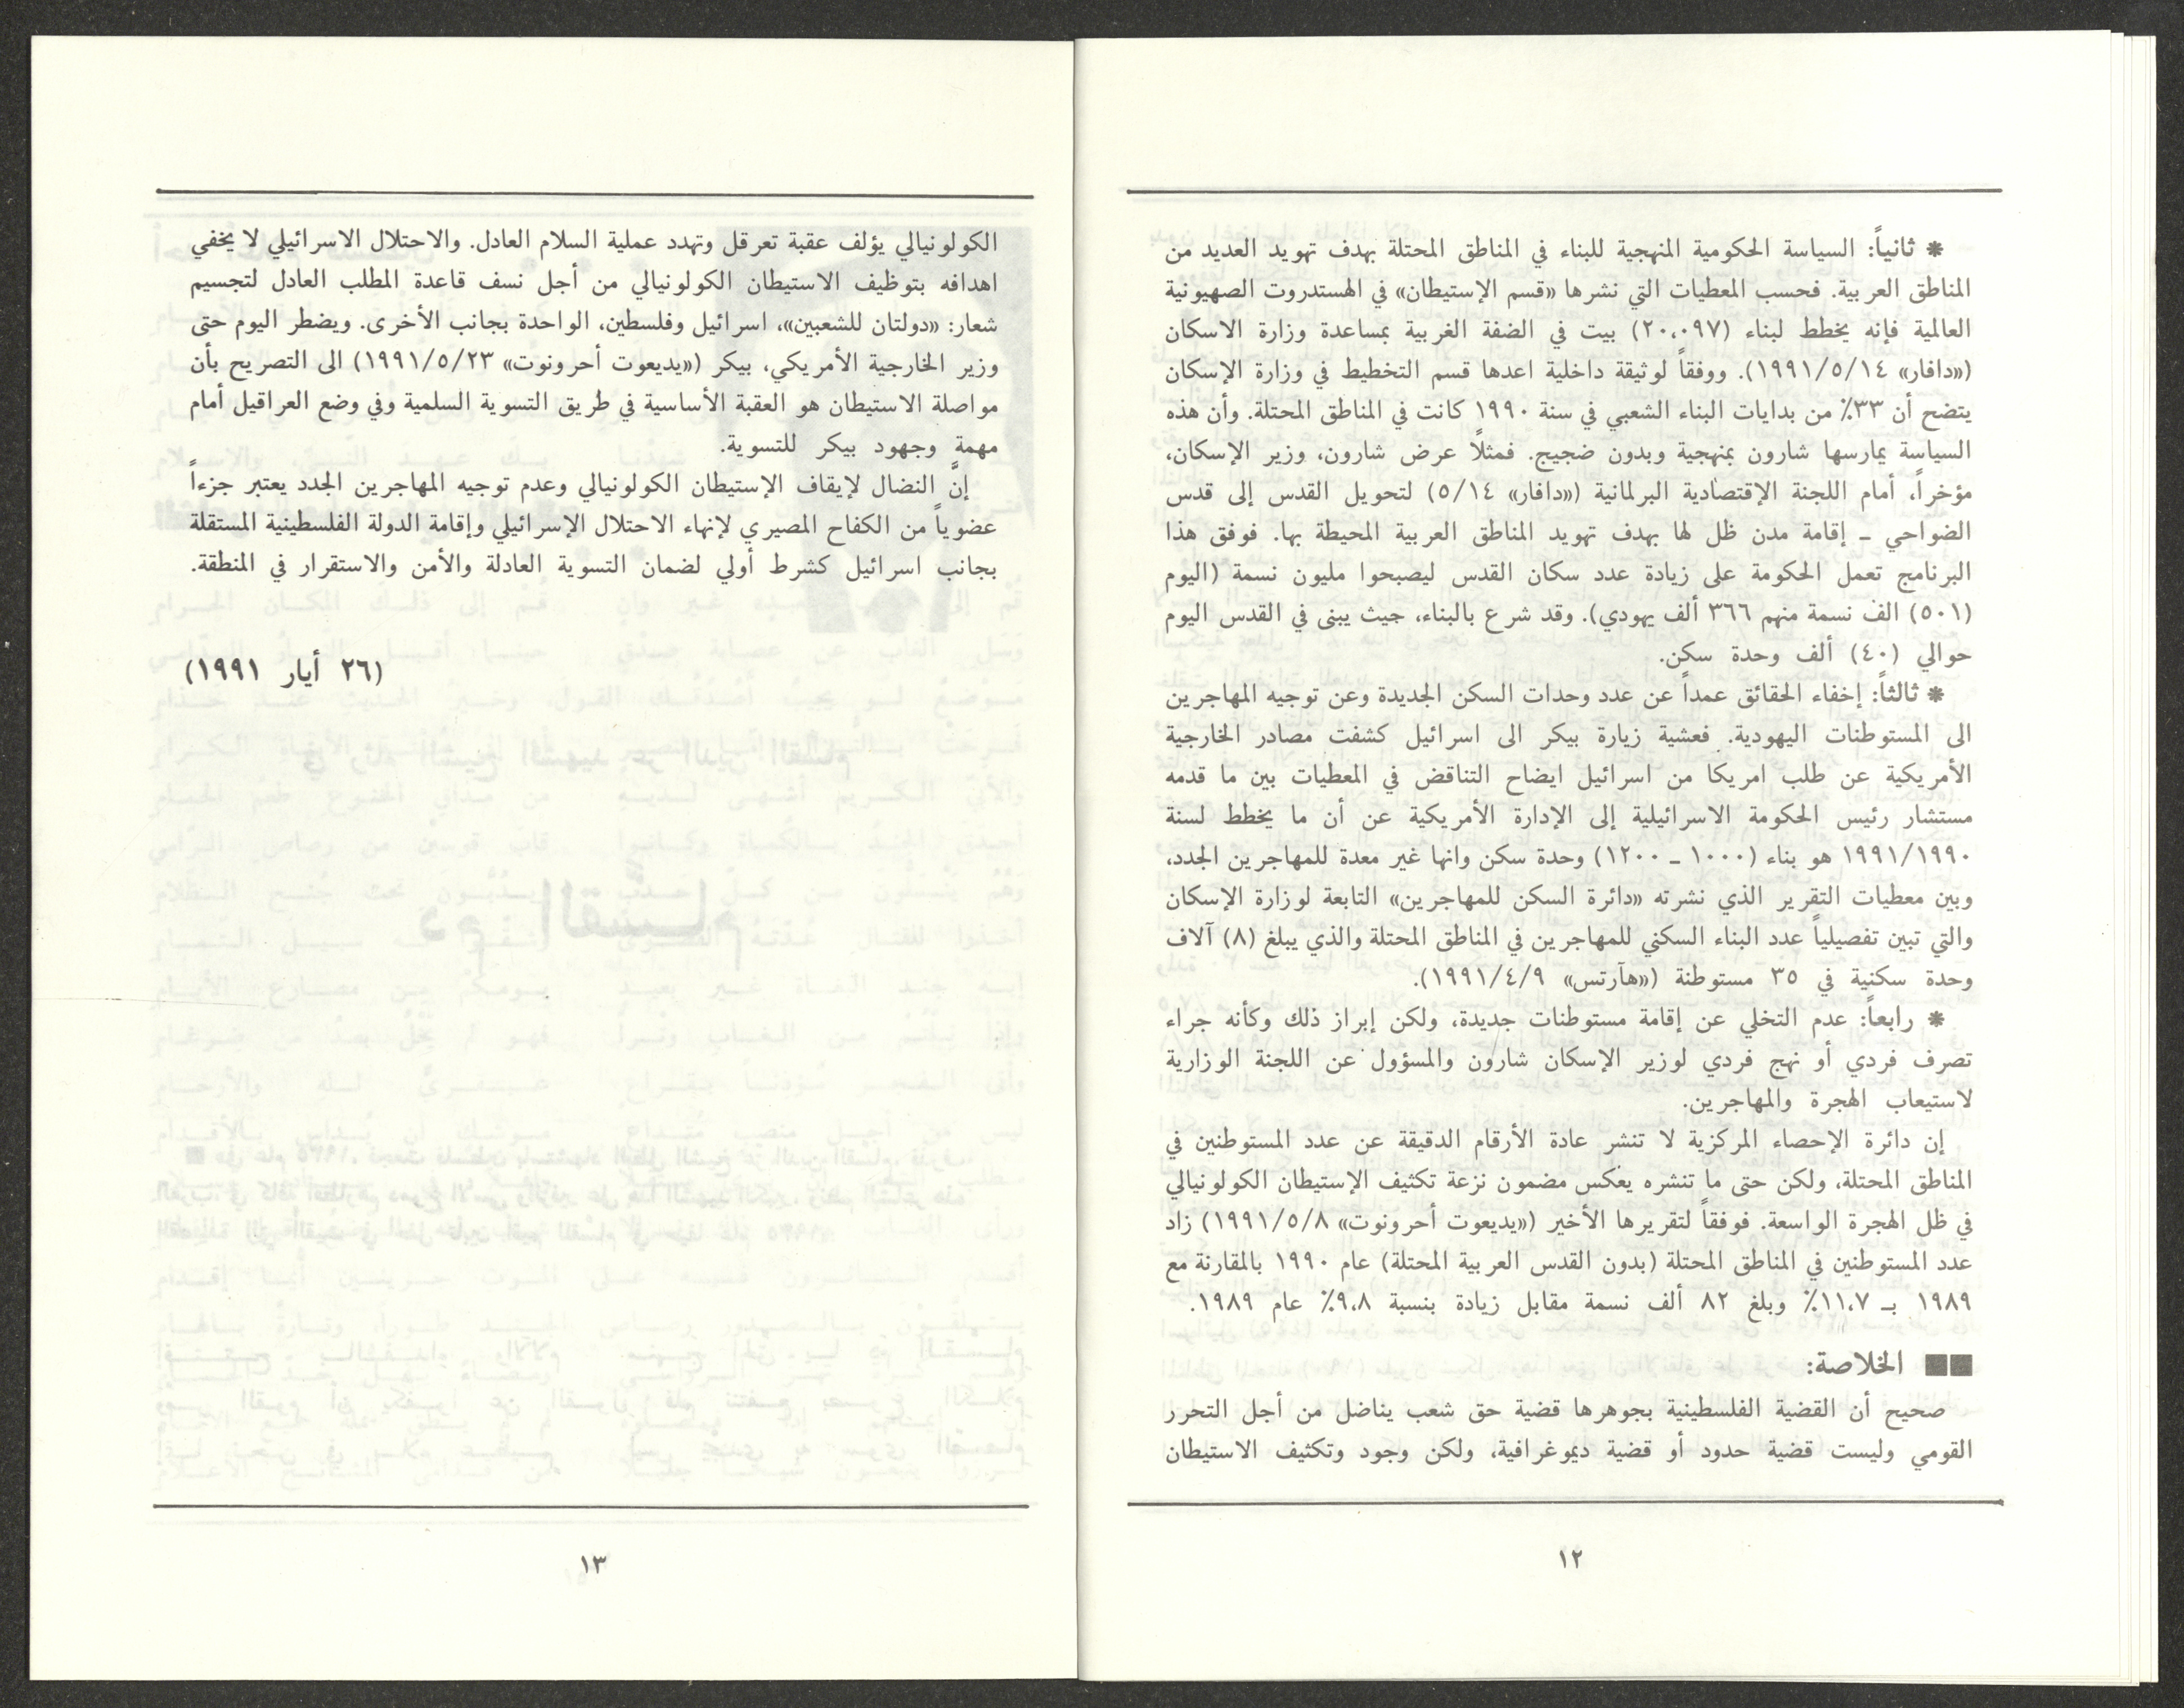 * ثانياً: السياسة الحكومية المنهجية للبناء في المناطق المحتلة بهدف تهويد العديد من
المناطق العربية. فحسب المعطيات التي نشرها «قسم الإستيطان» في الهستدروت الصهيونية
العالمية فإنه يخطط لبناء (٢٠،٠٩٧) بيت في الضفة الغربية بمساعدة وزارة الاسكان
(«دافار» ١٩٩١/٥/١٤). ووفقاً لوثيقة داخلية اعدها قسم التخطيط في وزارة الإسكان
يتضح أن ٣٣٪ من بدايات البناء الشعبي في سنة ١٩٩٠ كانت في المناطق المحتلة. وأن هذه
السياسة يمارسها شارون بمنهجية وبدون ضجيج. فمثلاً عرض شارون، وزير الإسكان،
مؤخراً، أمام اللجنة الإقتصادية البرلمانية («دافار» ٥/١٤) لتحويل القدس إلى قدس
الضواحي ـ إقامة مدن ظل لها بهدف تهويد المناطق العربية المحيطة بها. فوفق هذا
البرنامج تعمل الحكومة على زيادة عدد سكان القدس ليصبحوا مليون نسمة (اليوم
(٥٠١) الف نسمة منهم ٣٦٦ ألف يهودي). وقد شرع بالبناء، جيث يبنى في القدس اليوم
حوالي (٤٠) ألف وحدة سكن.
* ثالثاً: إخفاء الحقائق عمداً عن عدد وحدات السكن الجديدة وعن توجيه المهاجرين
الى المستوطنات اليهودية. فعشية زيارة بيكر الى اسرائيل كشفت مصادر الخارجية
الأمريكية عن طلب امريكا من اسرائيل ايضاح التناقض في المعطيات بين ما قدمه
مستشار رئيس الحكومة الاسرائيلية إلى الإدارة الأمريكية عن أن ما يخطط لسنة
١٩٩١/١٩٩٠ هو بناء (١٠٠٠ ـ ١٢٠٠) وحدة سكن وانها غير معدة للمهاجرين الجدد،
وبين معطيات التقرير الذي نشرته «دائرة السكن للمهاجرين» التابعة لوزارة الإسكان
والتي تبين تفصيلياً عدد البناء السكني للمهاجرين في المناطق المحتلة والذي يبلغ (٨) آلاف
وحدة سكنية في ٣٥ مستوطنة («هآرتس» ١٩٩١/٤/٩).
* رابعاً: عدم التخلي عن إقامة مستوطنات جديدة، ولكن إبراز ذلك وكأنه جراء
تصرف فردي أو نهج فردي لوزير الإسكان شارون والمسؤول عن اللجنة الوزارية
لاستيعاب الهجرة والمهاجرين.
إن دائرة الإحصاء المركزية لا تنشر عادة الأرقام الدقيقة عن عدد المستوطنين في
المناطق المحتلة، ولكن حتى ما تنشره يعكس مضمون نزعة تكثيف الإستيطان الكولونيالي
في ظل الهجرة الواسعة. فوفقاً لتقريرها الأخير («يديعوت أحرونوت» ١٩٩١/٥/٨) زاد
عدد المستوطنين في المناطق المحتلة (بدون القدس العربية المحتلة) عام ١٩٩٠ بالمقارنة مع
١٩٨٩ بـ ١١،٧٪ وبلغ ٨٢ ألف نسمة مقابل زيادة بنسبة ٩،٨٪ عام ١٩٨٩.
■■ الخلاصة:
صحيح أن القضية الفلسطينية بجوهرها قضية حق شعب يناضل من أجل التحرر
القومي وليست قضية حدود أو قضية ديموغرافية، ولكن وجود وتكثيف الاستيطان
١٢
الكولونيالي يؤلف عقبة تعرقل وتهدد عملية السلام العادل. والاحتلال الاسرائيلي لا يخفي
اهدافه بتوظيف الاستيطان الكولونيالي من أجل نسف قاعدة المطلب العادل لتجسيم
شعار: «دولتان للشعبين»، اسرائيل وفلسطين، الواحدة بجانب الأخرى. ويضطر اليوم حتى
وزير الخارجية الأمريكي، بيكر («يديعوت أحرونوت» ١٩٩١/٥/٢٣) الى التصريح بأن
مواصلة الاستيطان هو العقبة الأساسية في طريق التسوية السلمية وفي وضع العراقيل أمام
مهمة وجهود بيكر للتسوية.
إنَّ النضال لإيقاف الإستيطان الكولونيالي وعدم توجيه المهاجرين الجدد يعتبر جزءاً
عضوياً من الكفاح المصيري لإنهاء الاحتلال الإسرائيلي وإقامة الدولة الفلسطينية المستقلة
بجانب اسرائيل كشرط أولي لضمان التسوية العادلة والأمن والاستقرار في المنطقة.
(٢٦ أيار ١٩٩١)
١٣